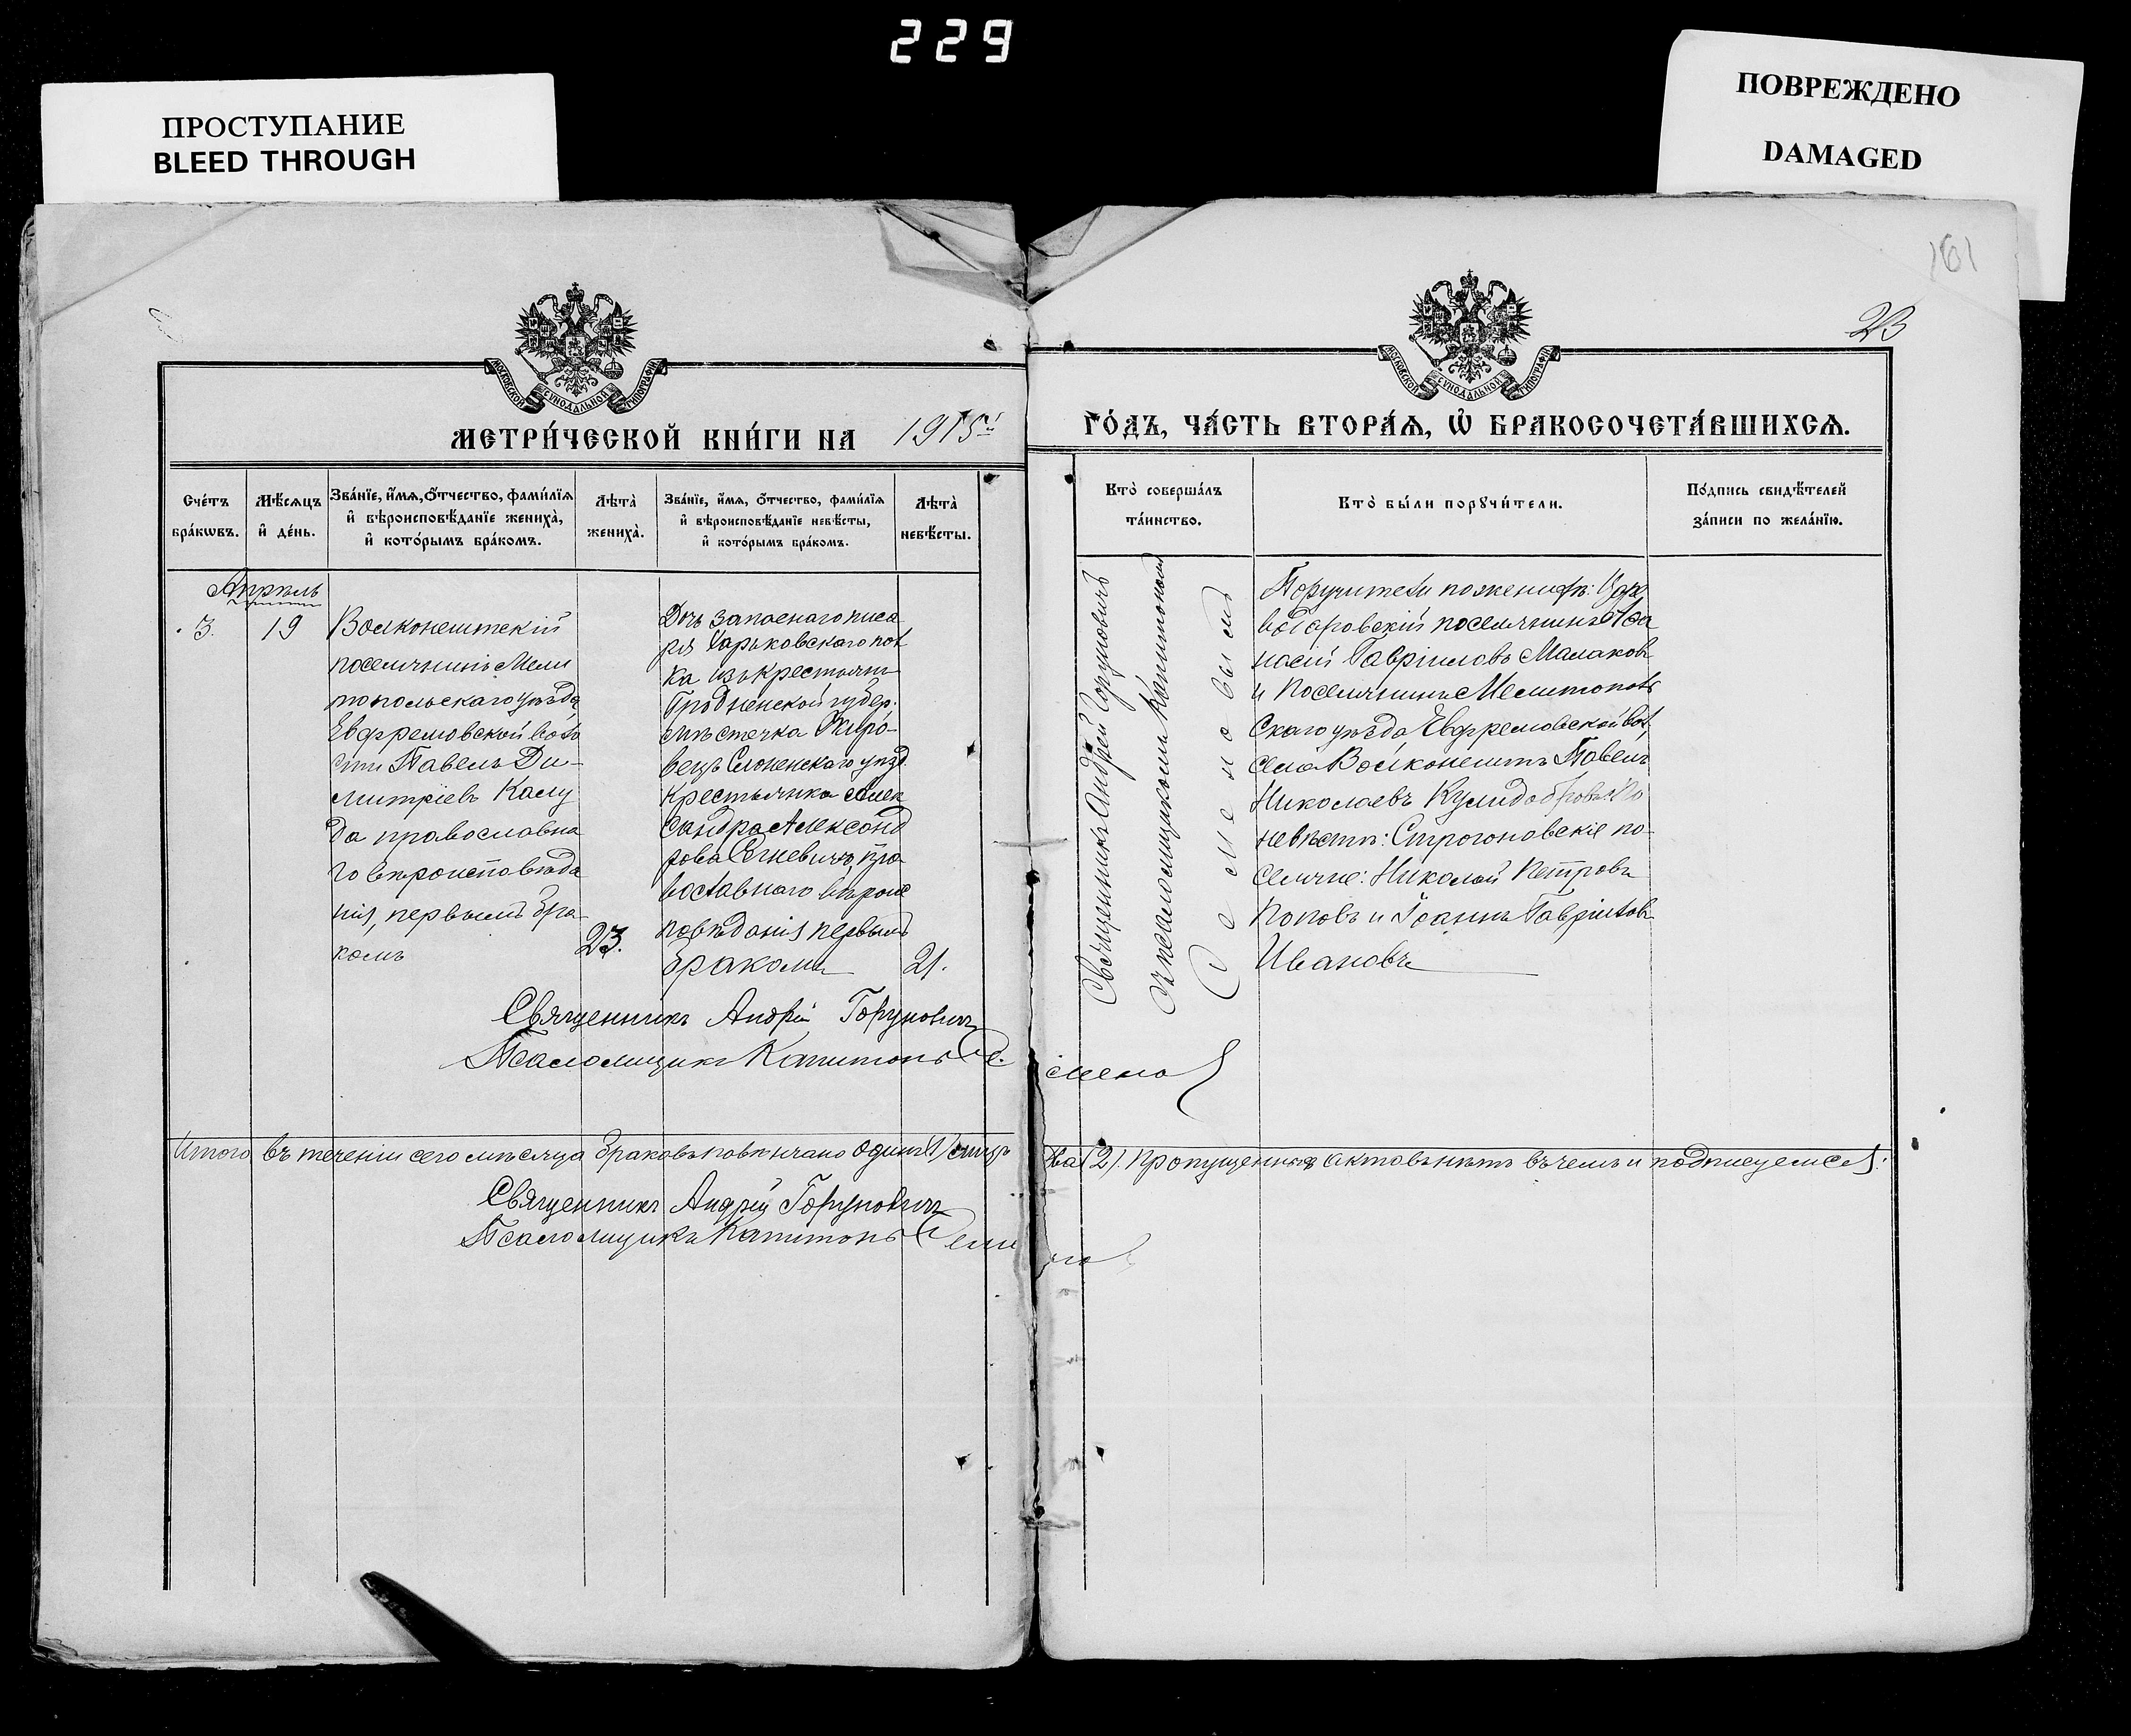 229
ПРОСТУПАНИЕ
BLEED THROUGH
ПОВРЕЖДЕНО
DAMAGED
161
23
МОСКОВСКОЙ СѴНОДАЛЬНОЙ ТИПОГРАФІИ
МОСКОВСКОЙ СѴНОДАЛЬНОЙ ТИПОГРАФІИ
МЕТРИ́ЧЕСКОЙ КНИ́ГИ НА 1915й
ГО́ДЪ, ЧА́СТЬ ВТОРА́Ѧ, Ѡ҆ БРАКОСОЧЕТА́ВШИХСѦ.
Сче́тъ
бра́кѡвъ.
Мѣ́сѧцъ
и҆ де́нь.
Зва́нїе, и҆́мѧ, ѻ҆́тчество, фами́лїѧ
и҆ вѣроисповѣ́данїе жениха̀,
и҆ кото́рымъ бра́комъ.
Лѣта̀
жениха̀.
Зва́нїе, и҆́мѧ, ѻ҆́тчество, фами́лїѧ
и҆ вѣроисповѣ́данїе невѣ́сты,
и҆ кото́рымъ бра́комъ.
Лѣта̀
невѣ́сты.
Кто̀ соверша́лъ
та́инство.
Кто̀ бы́ли порꙋчи́тели.
По́дпись свидѣ́телей
за́писи по жела́нїю.
Апрѣль
3.
19
Волконештскій
поселянинъ Мели
топольскаго уѣзда
Евфремовской воло
сти Павелъ Ди-
митріевъ Калу
да православна
го вѣроисповѣда
нія, первымъ бра-
комъ
23.
Дочь запаснаго писа
ря Харьковскаго пол
ка изъ крестьянъ
Гродненской губер.
мѣстечка Жиро-
вецъ Слоненскаго уѣзд.
крестьянка Алек
сандра Александ
рова пра
вославнаго вѣроис
повѣданія первымъ
бракомъ
21.
Священникъ Андрей Горуновичъ
съ псаломщикомъ Капитономъ
Семеновымъ
Поручители по женихѣ:
поселянинъ Аѳа
насій Гавріиловъ Малаковъ
и поселянинъ Мелитополь
скаго уѣзда, Евфремовской вол,
села Волконештъ Павелъ
Николаевъ По
невѣстѣ: Строгоновскіе по-
селяне: Николай Петровъ
Поповъ и Іоаннъ Гавріиловъ
Ивановъ
Священникъ Андрій Горуновичъ
Псаломщикъ Капитонъ Семенов
Итого въ теченіи сего мѣсяца браковъ повѣнчано одинъ (1) лицъ два (2). Пропущенныхъ актовъ нѣтъ въ чемъ и подписуемся:
Священникъ Андрей Горуновичъ
Псаломщикъ Капитонъ Семенов